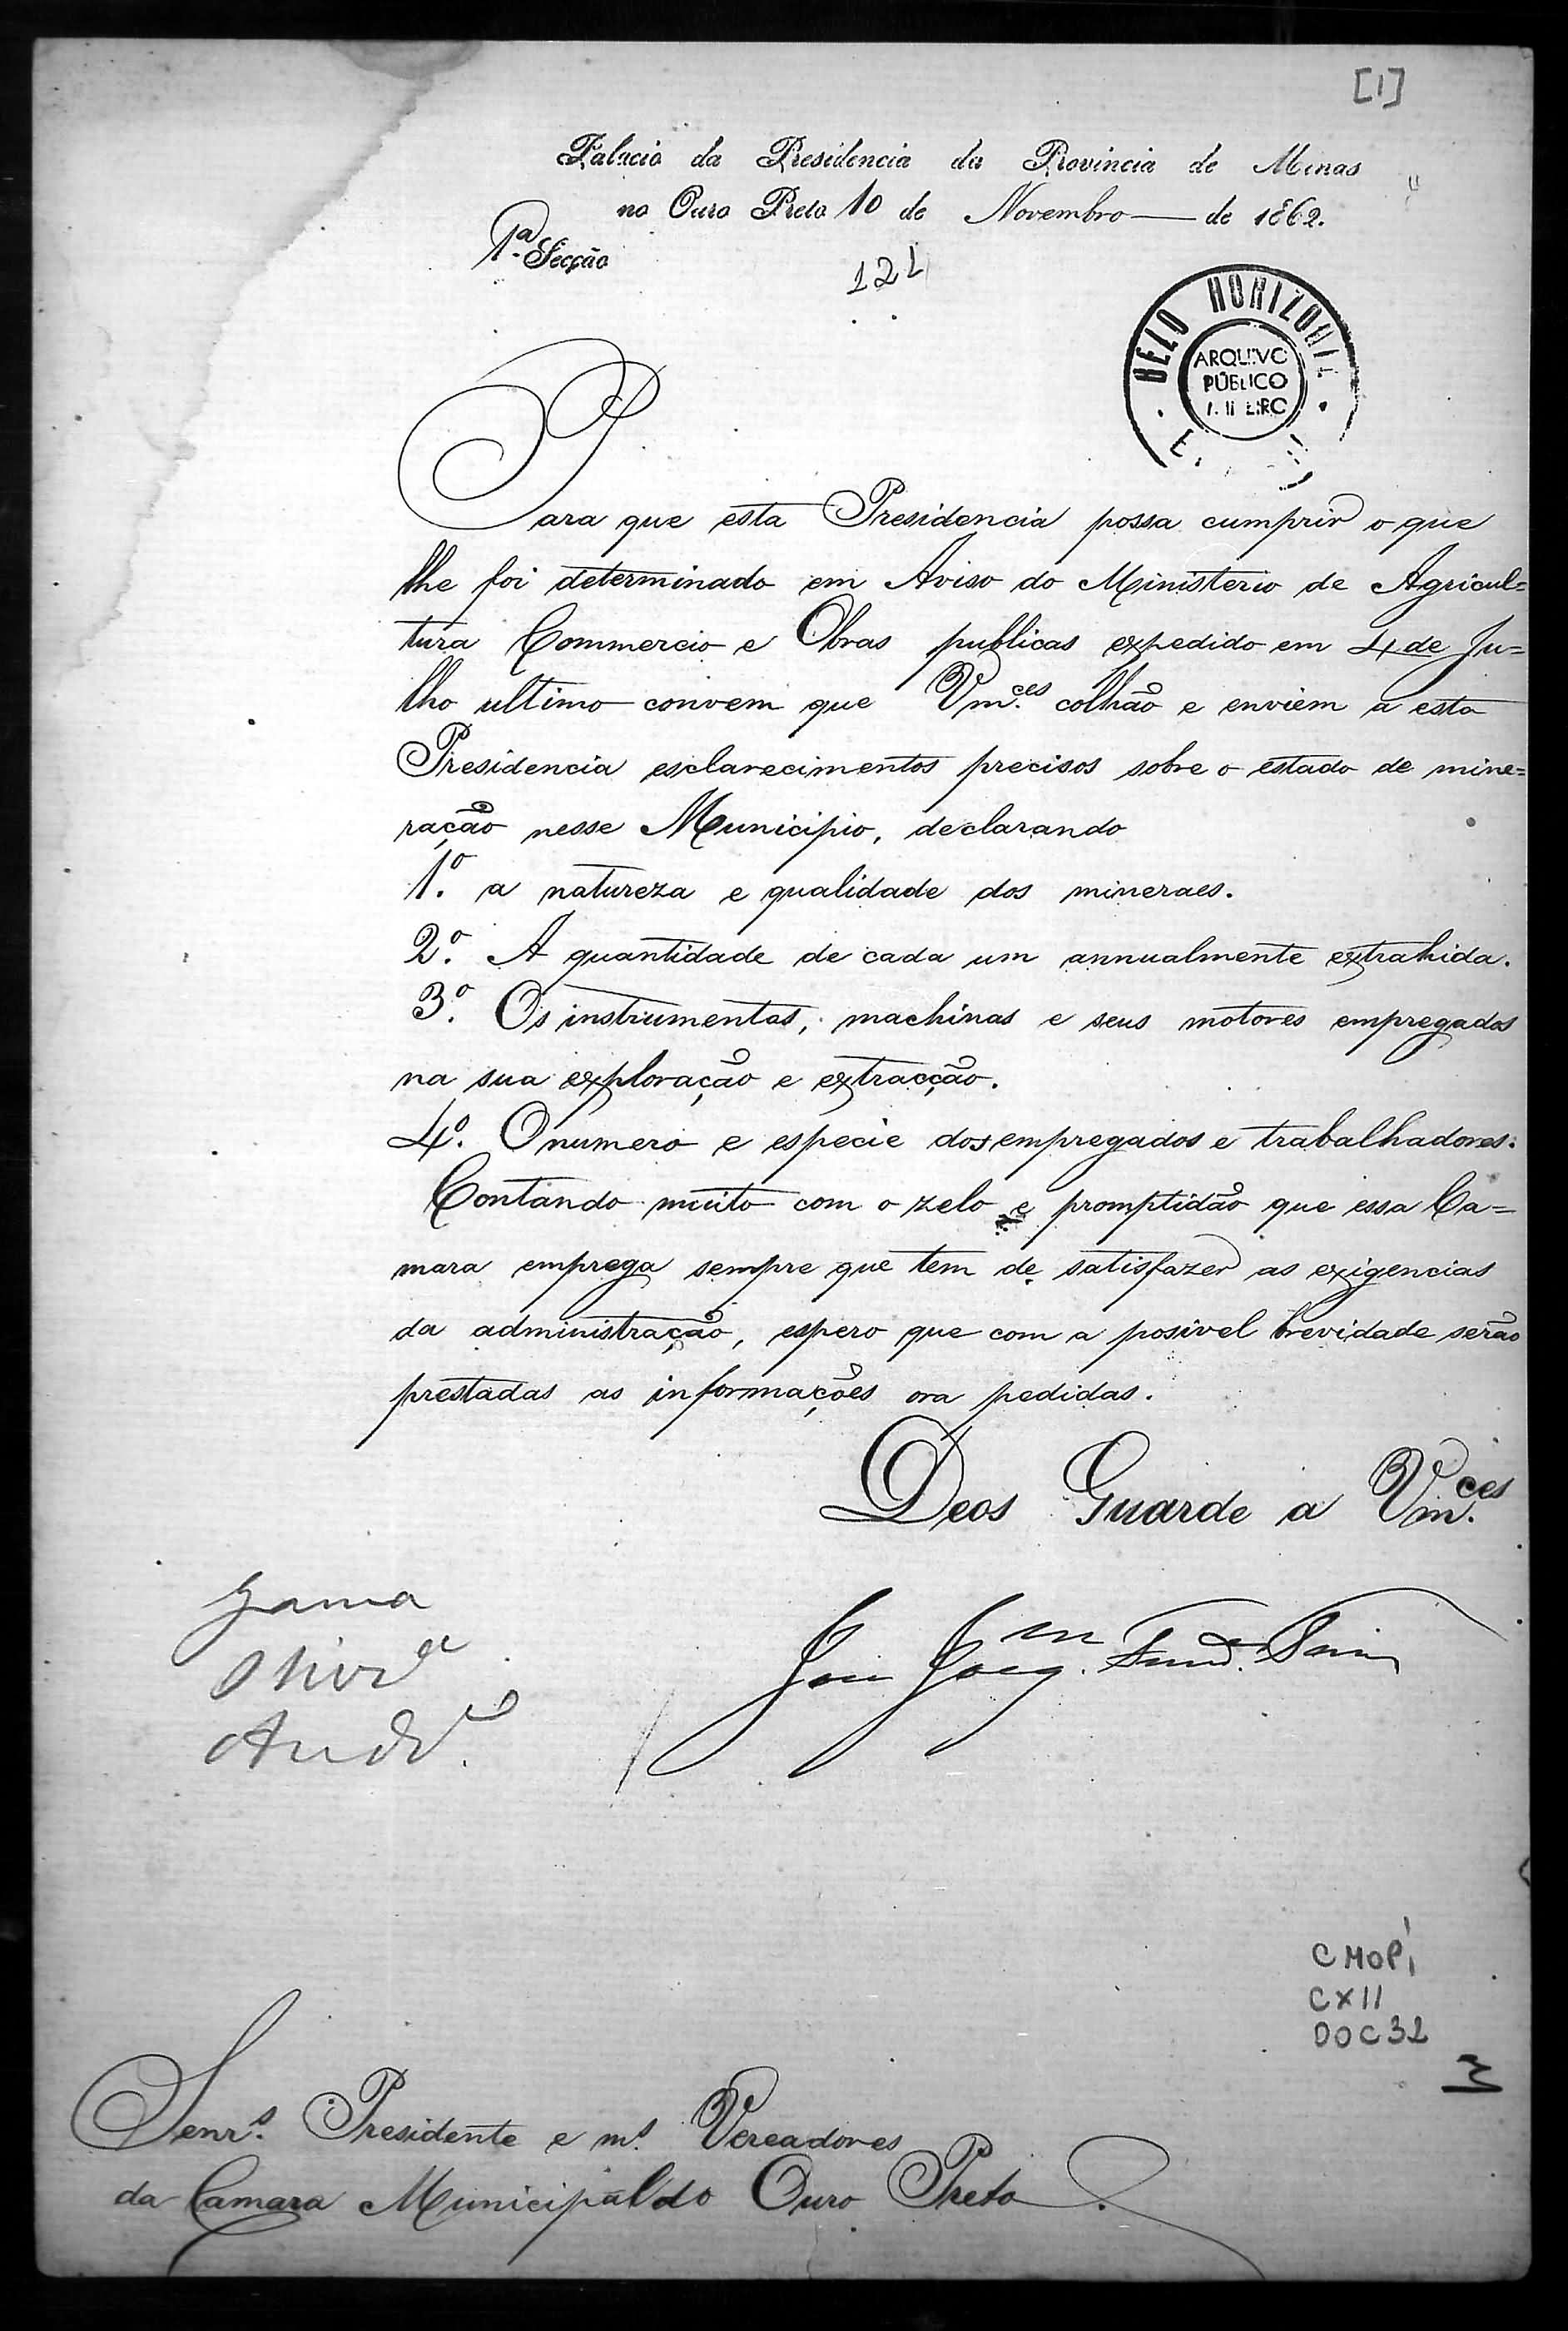 [1]
Palacio da Presidencia da Provincia de Minas
no Ouro Preto 10 de Novembro de 1862.
1ª Secção
121
BELO HORIZONTE
ARQUIVO
PÚBLICO
MINEIRO
Para que esta Presidencia possa cumprir o que
lhe foi determinado em Aviso do Ministerio de Agricul=
tura Commercio e Obras publicas expedido em 4 de Ju=
lho ultimo convem que Vm.ces colhão e enviem a esta
Presidencia esclarecimentos precisos sobre o estado de mine=
ração nesse Municipio, declarando
1.º a natureza e qualidade dos mineraes.
2.º A quantidade de cada um annualmente extrahida.
3.º Os instrumentos, machinas e seus motores empregados
na sua exploração e extracção.
4.º O numero e especie dos empregados e trabalhadores.
Contando muito com o zelo e promptidão que essa Ca=
mara emprega sempre que tem de satisfazer as exigencias
da administração, espero que com a posivel brevidade serão
prestadas as informações ora pedidas.
Deos Guarde a Vm.ces
Gama
Andr.
CMOP
CX11
DOC 32
Senr.s Presidente e m.s Vereadores
da Camara Municipal do Ouro Preto.